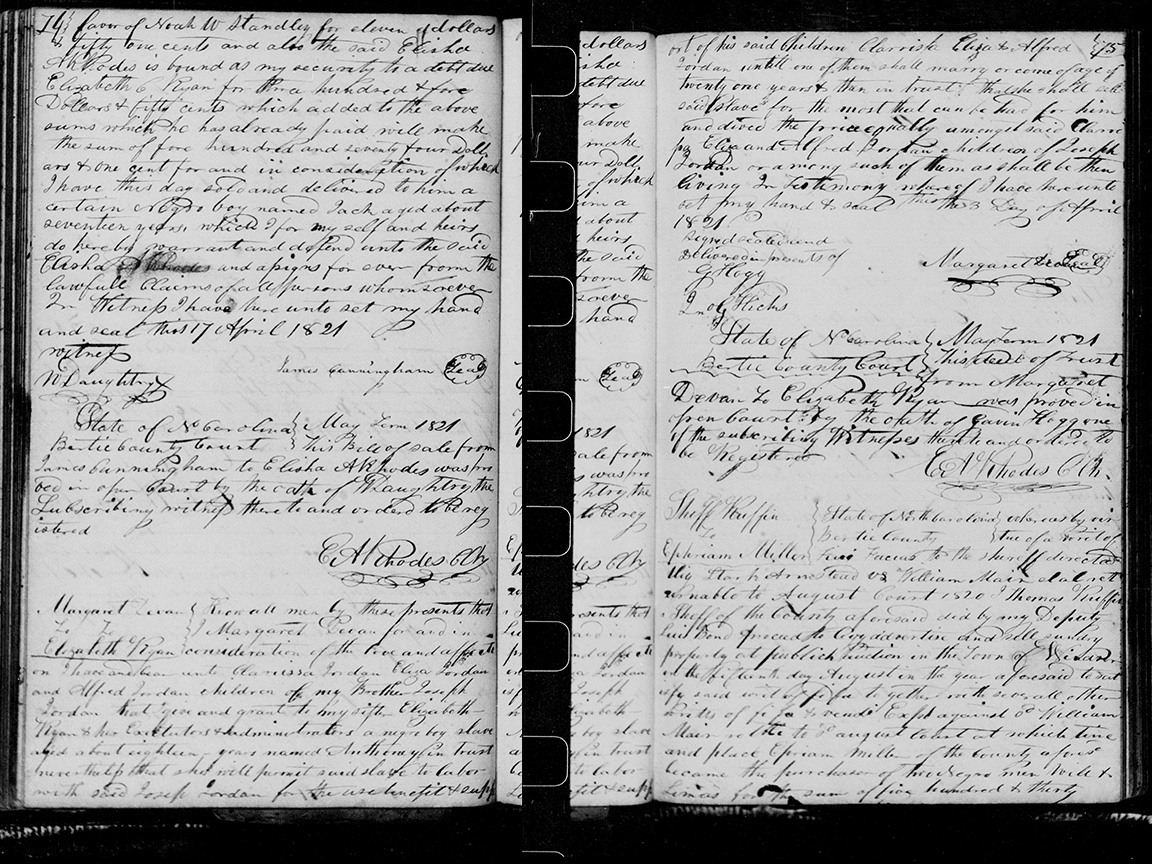 74 favor of Noah W Standley for eleven dollars
& fifty one cents and also the said Elisha
A Rhodes is bound as my security to a debt due
Elizabeth C Ryan for three hundred & fore
Dollars & fifty cents which added to the above
sums which he has already paid will make
the sum of fore hundred and seventy four Doll
ars & one cent for and in consideration of which
I have this day sold and delivered to him a
certain Negro boy named Jack aged about
seventeen years which I for my self and heirs
do hereby warrant and defend unto the said
Elisha A Rhodes and assigns for ever from the
lawfull Claims of all persons whomsoever
In Witness I have here unto set my hand
and seal this 17 April 1821
witness
James Cunningham Seal
W Daughtry
State of No Carolina } May Term 1821
Bertie County Court } This Bill of sale from
James Cunningham to Elisha A Rhodes was pro
ved in open Court by the oath of W Daughtry the
Subscribing witness thereto and ordered to be reg
istered
E A Rhodes Clk
Margaret Devan { Know all men by these presents that
To { I Margaret Devan for and in
Elizabeth Ryan { consideration of the love and affecti
on I have and bear unto Clarissa Jordan Eliza Jordan
and Alfred Jordan children of my Brother Joseph
Jordan that give and grant to my sister Elizabeth
Ryan & her Executors & administrators a negro boy slave
aged about eighteen years named Anthony in trust
nevertheless that she will permit said slave to labor
with said Joseph Jordan for the use benefit & supp
ort of his said Children Clarrissa Eliza & Alfred 75
Jordan untill one of them shall marry or come of age of
twenty one years & then in trust that she shall sell
said slave for the most that can be had for him
and divid the price equally amongst said Clarri
ssa Eliza and Alfred Jordan children of Joseph
Jordan or among such of them as shall be then
living In Testimony whereof I have here unto
set my hand & seal this the 3 Day of April
1821
Signed sealed and
Delivered in presents of
Margaret Devan Seal
G Hogg
Jno G Hicks
State of No Carolina } May Term 1821
Bertie County Court } This deed of trust
from Margaret
Devan to Elizabeth Ryan was proved in
open Court by the oath of Gavin Hogg one
of the subscribing Witnesses thereto and ordered to
be Registered
E A Rhodes Clk
Sheff Ruffin } State of North Carolina } whereas by vir
To } Bertie County } tue of a writ of
Ephriam Miller Fieri Facias to the sheriff directed
Starke Armistead vs William Mair et al ret
urnable to August Court 1820 I Thomas Ruffin
Sheff of the County aforesaid did by my Deputy
Luis Bond proceed to Levy advertise and sell sundry
property at publick auction in the Town of Windsor
on the fifteenth day August in the year aforesaid to sat
isfy said writ of fi fa together with several other
writes of fi fa & vendi Expo against sd William
Mair ret to sd august Court at which time
and place Epriam Miller of the County aforesd
became the purchaser of two Negro men Will &
for the sum of five hundred & thirty